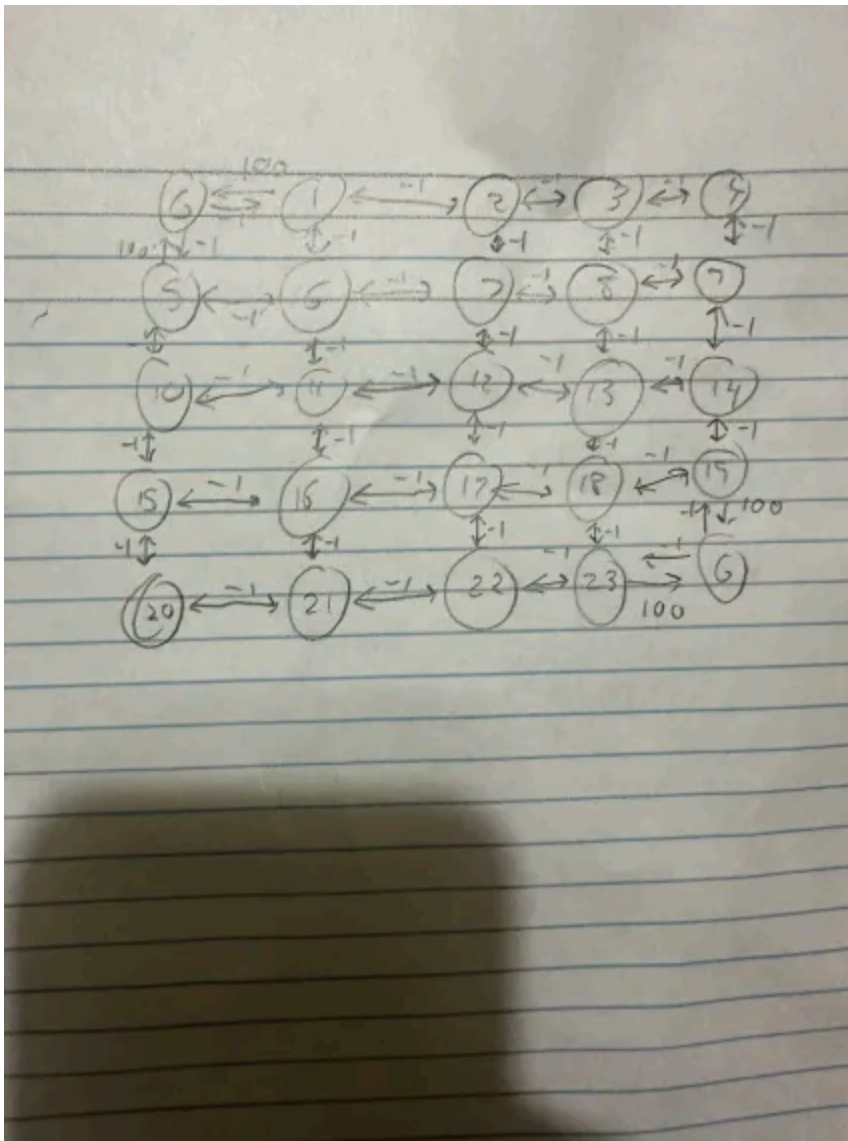 100
G 1 -1 2 -1 3 -1 4
-1
100 -1 -1 -1 -1 -1
5 -1 6 -1 7 -1 8 -1 9
-1 -1 -1 -1
10 -1 11 -1 12 -1 13 -1 14
-1 -1 -1 -1 -1
15 -1 16 -1 17 -1 18 -1 19
-1 -1 -1 -1 -1 100
20 -1 21 -1 22 -1 23 -1 G
100